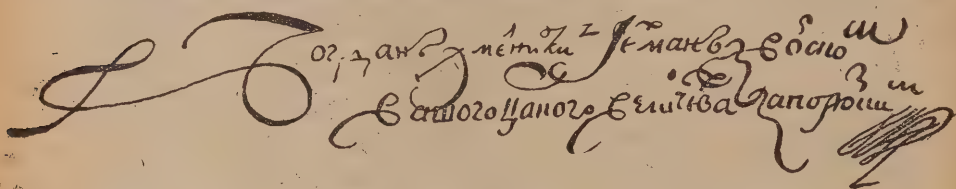 Богданъ Хмелницкий Гетманъ з Войском
Вашого Царского Величества Запорозким